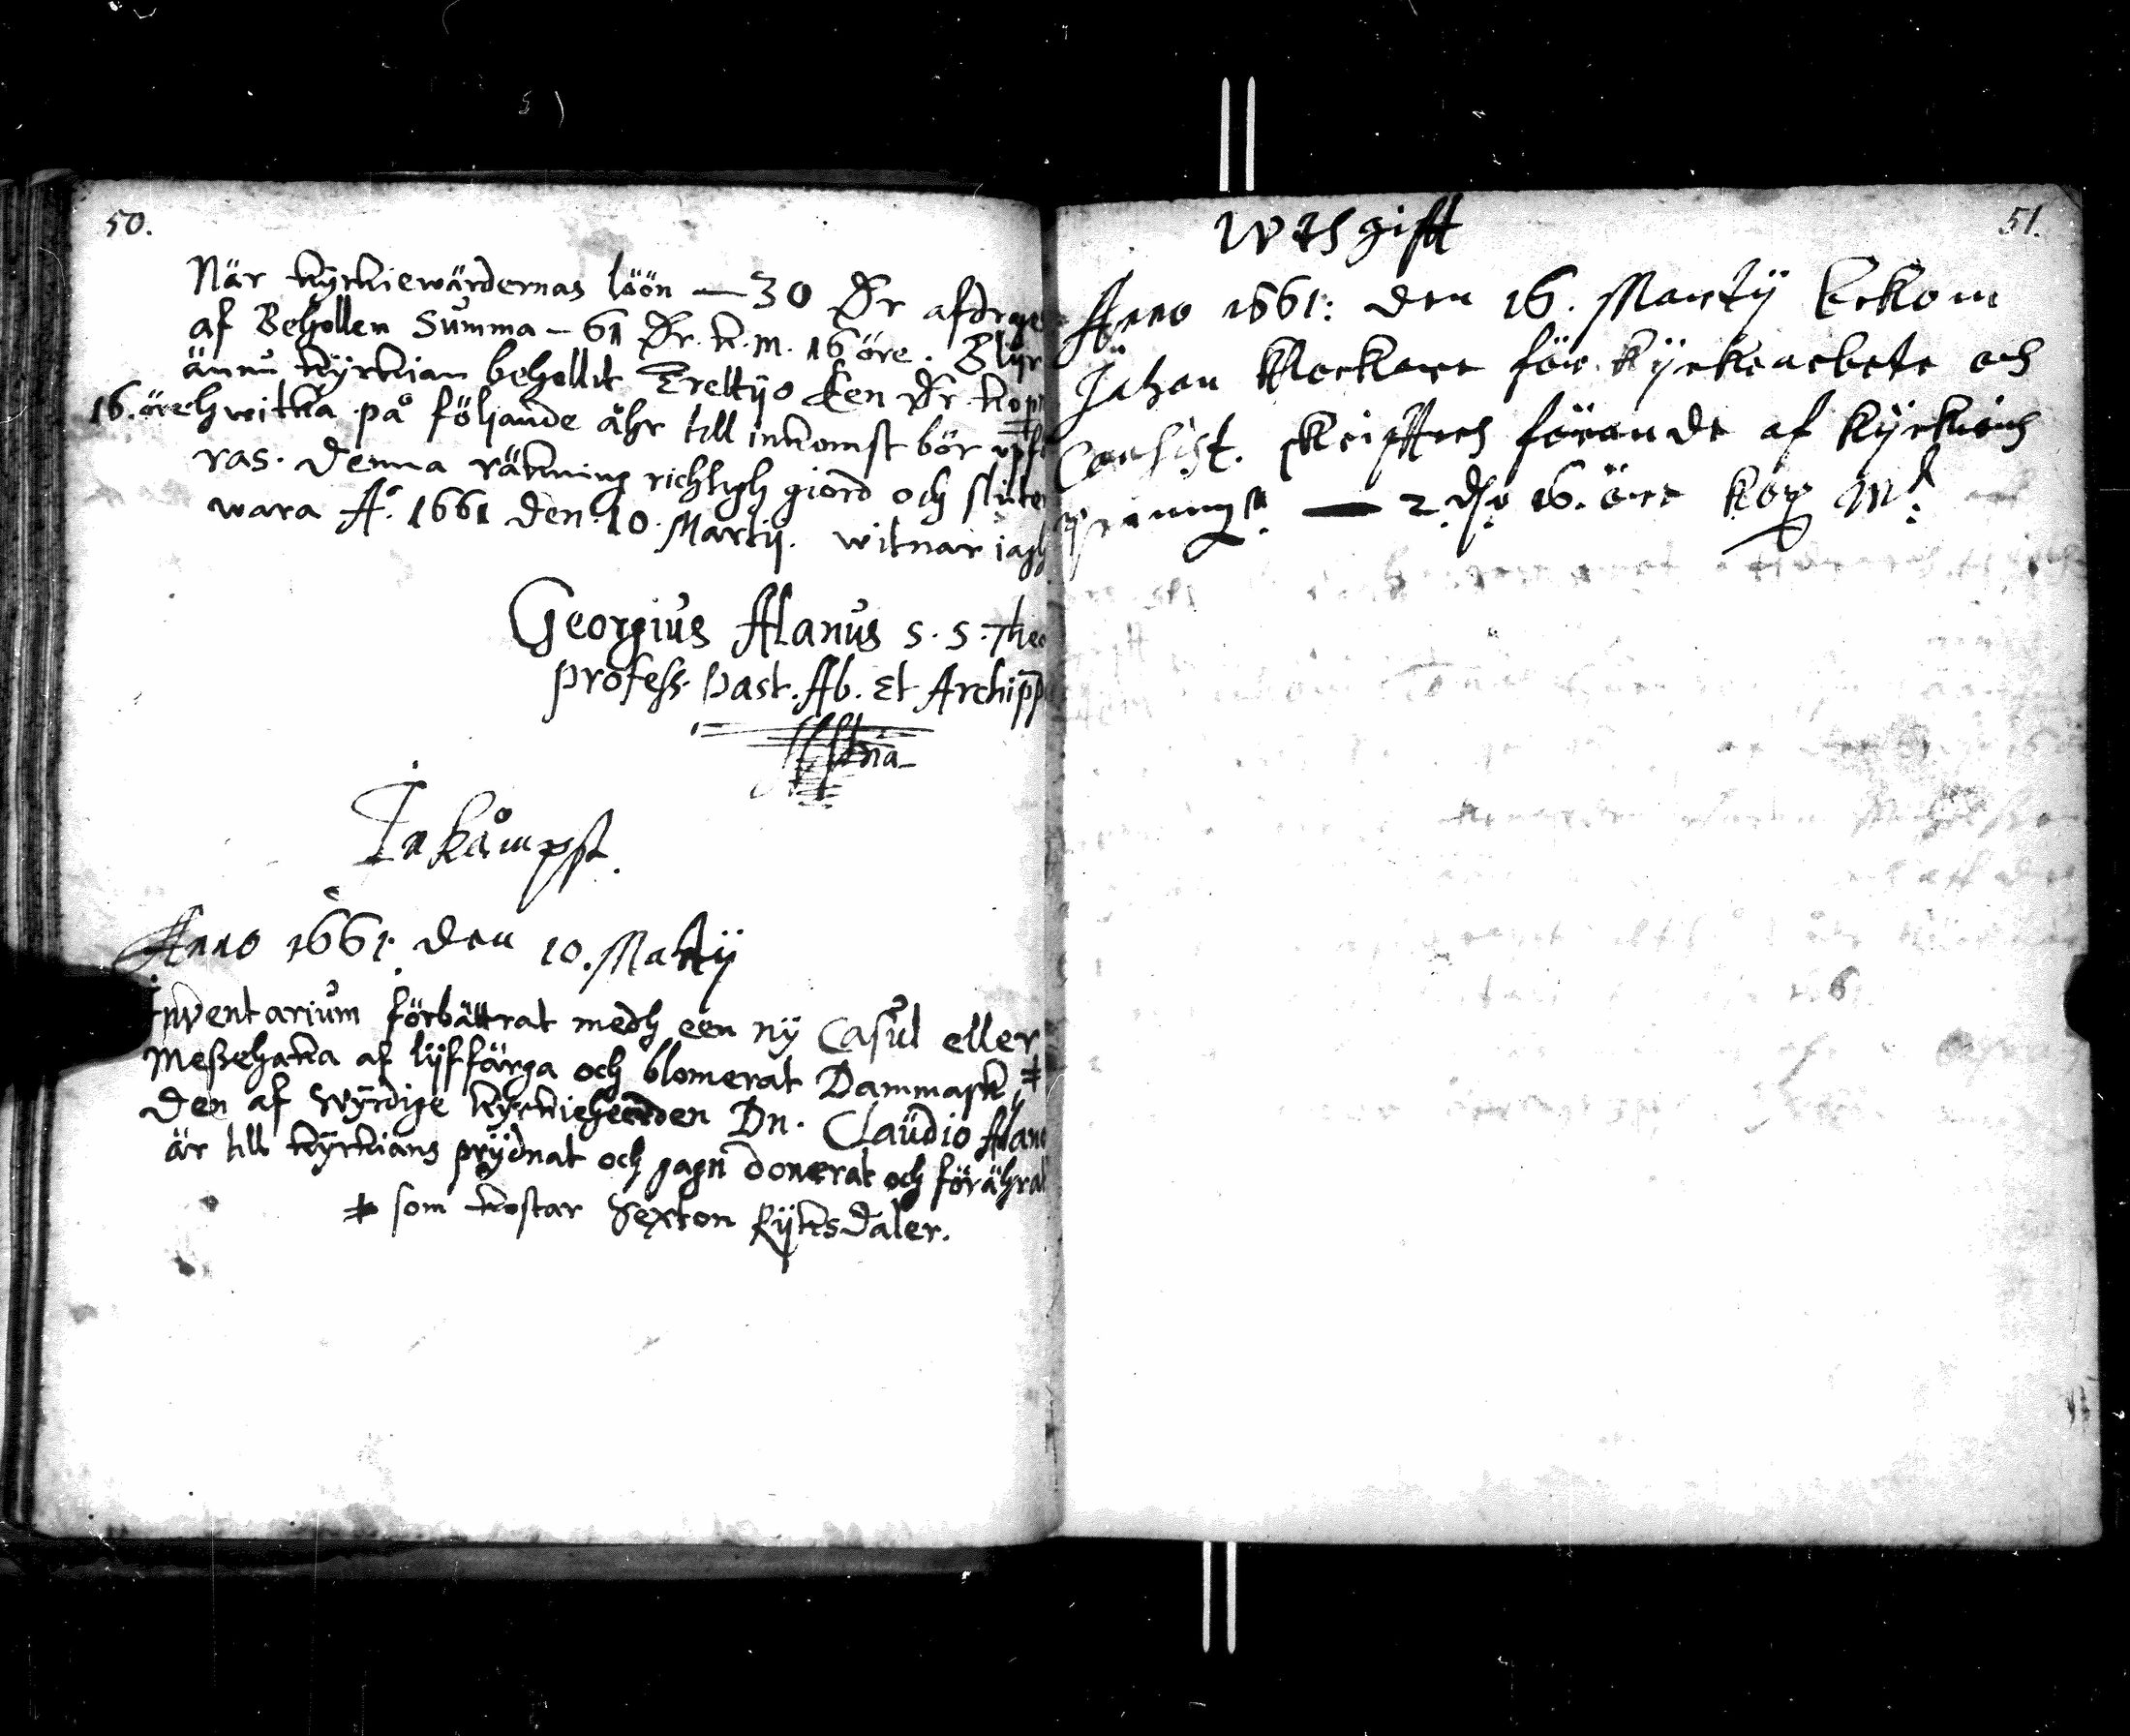 50.
När kyrkiewärdernas löön — 30 Dr afdrge
af Behollen Summa — 61 Dr. k. m. 16 öre. Blijr
ännu kyrkian behollit Trettijo Een Dr kopp
16. öre hwitka på följande åhr till inkomst bör vpfö
ras. Denna räkning richtigh giord och sluten
wara A:o 1661 den 10. Martij. witnar iagh
Georgius Alanus S. S. Theo
profess. Past. Ab. Et Archipp
Inkåmpst.
Anno 1661. den 10. Martij
Inventarium förbättrat medh een ny Casul eller
Messehaka af lijffärga och blomerat Dammask #
den af Wyrdige kyrkieherden Dn. Claudio Alano
är till kyrkians prydnat och gagn donerat och förährat
# som kostar Sexton Rijksdaler.
51.
Wthgifft
Anno 1661: den 16. Martij bekom
Johan Klockare för kyrkearbete och
Consist. skriffters förande af kyrkiens
peningr. — 2. dlr 16. öre kop Mt: